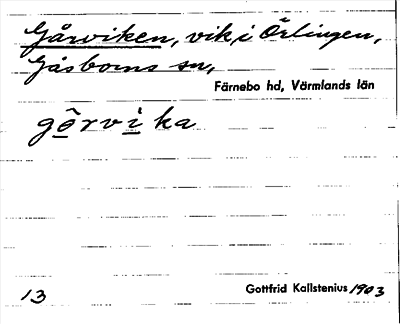 Gårviken, vik i Örlingen,
Gåsborns sn,
Färnebo hd, Värmlands län
gọ̃rvi̇ka
13
Gottfrid Kallstenius 1903